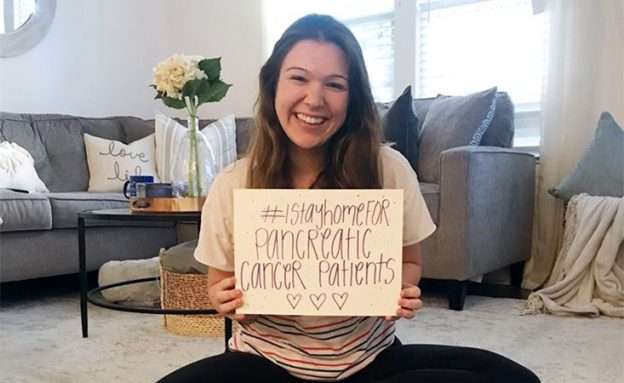 love
#IStayhomeFOR
Pancreatic
Cancer Patients